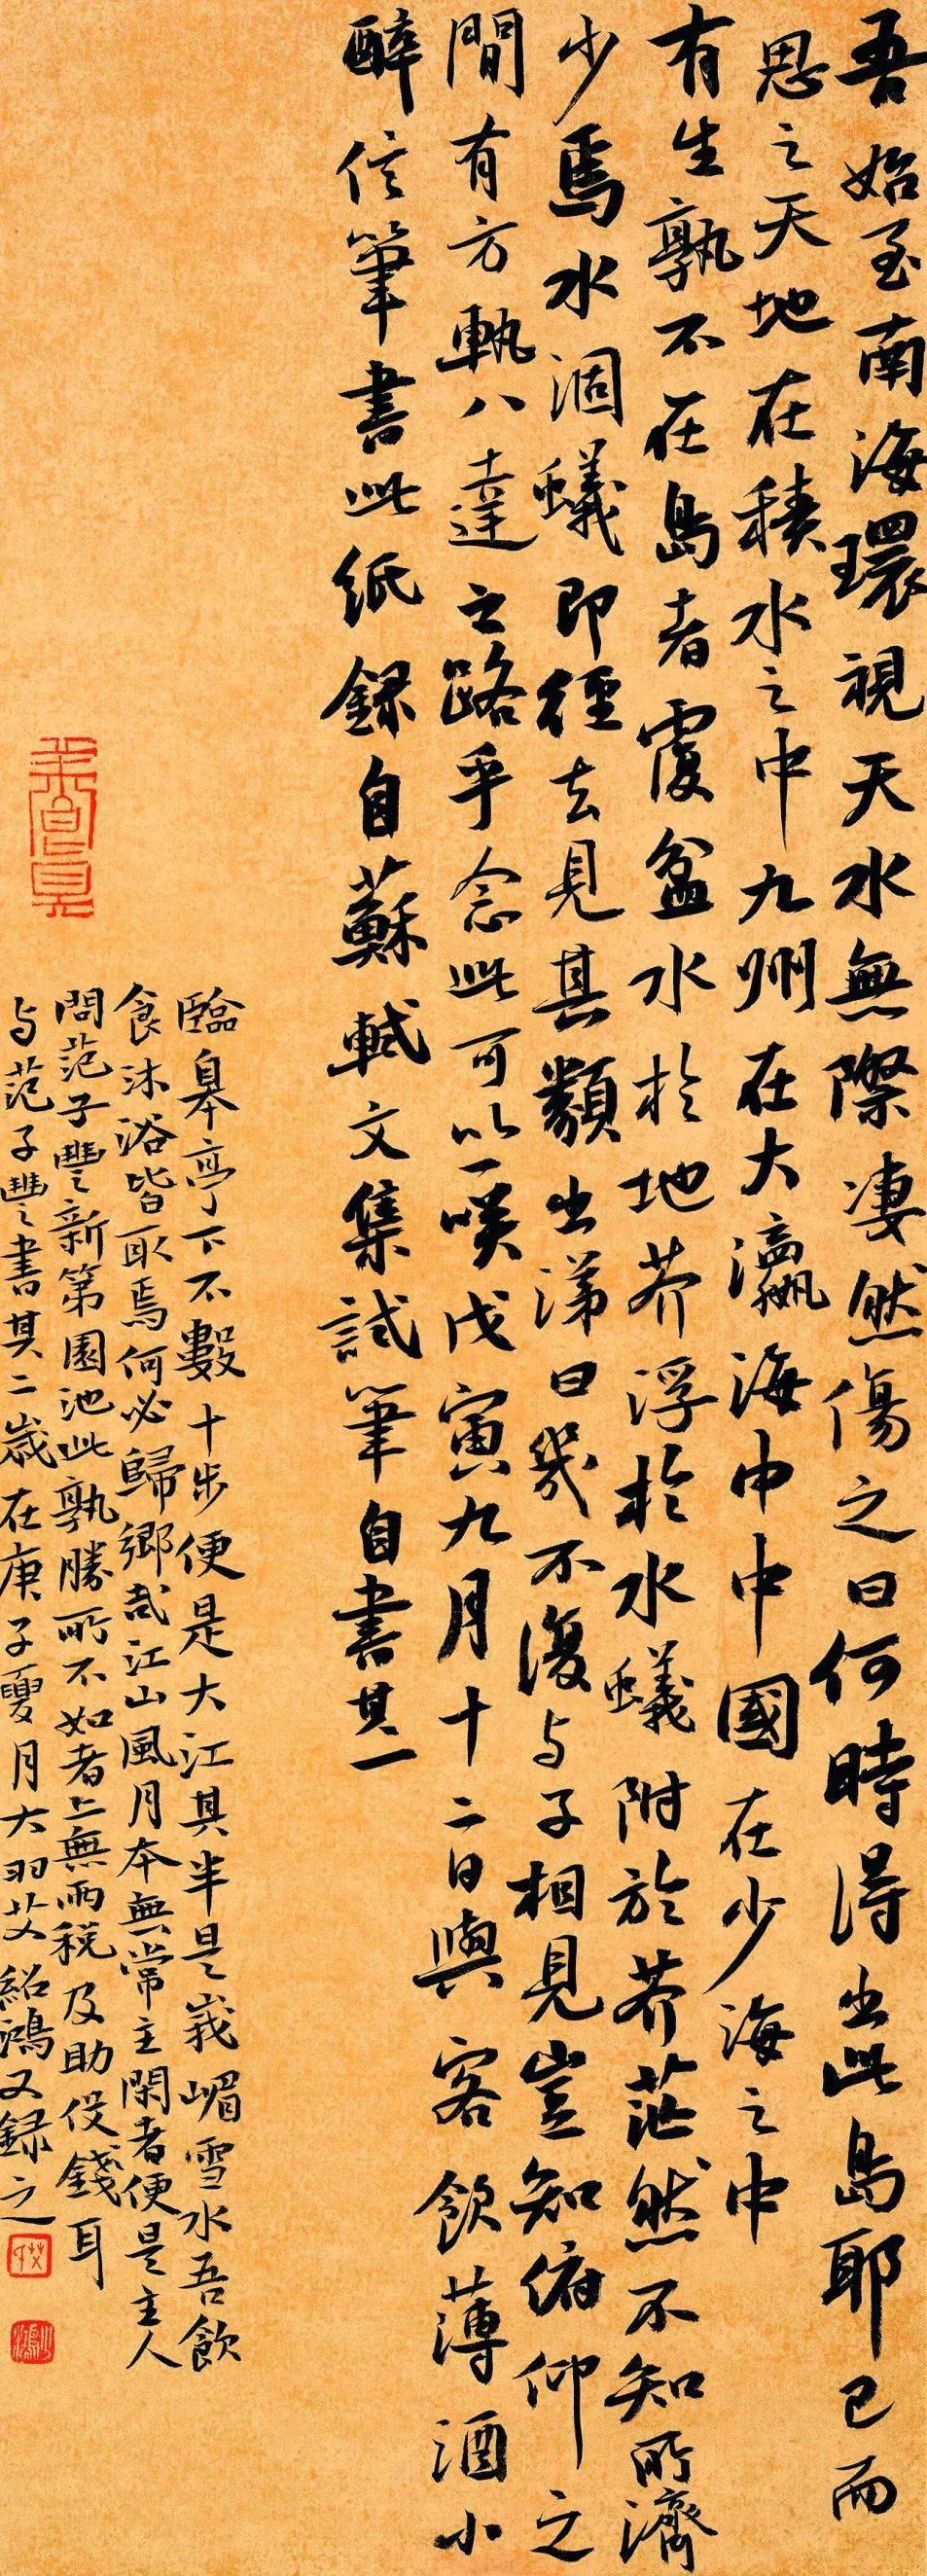 吾始至南海環視天水無際凄然傷之曰何時得出此島耶已而
思之天地在積水之中九州在大瀛海中中國在少海之中
有生孰不在島者覆盆水於地芥浮於水蟻附於芥茫然不知所濟
少焉水涸蟻即徑去見其類出涕曰幾不復与子相見豈知俯仰之
間有方軌八達之路乎念此可以一笑戊寅九月十二日與客飲薄酒小
醉信筆書此紙錄自蘇軾文集試筆自書其一
臨皋亭下不數十步便是大江其半是峨嵋雪水吾飲
食沐浴皆取焉何必歸鄉哉江山風月本無常主閑者便是主人
問范子豐新第園池此孰勝所不如者上無兩稅及助役錢耳
与范子豐書其二歲在庚子夏月大羽艾紹鴻又録之